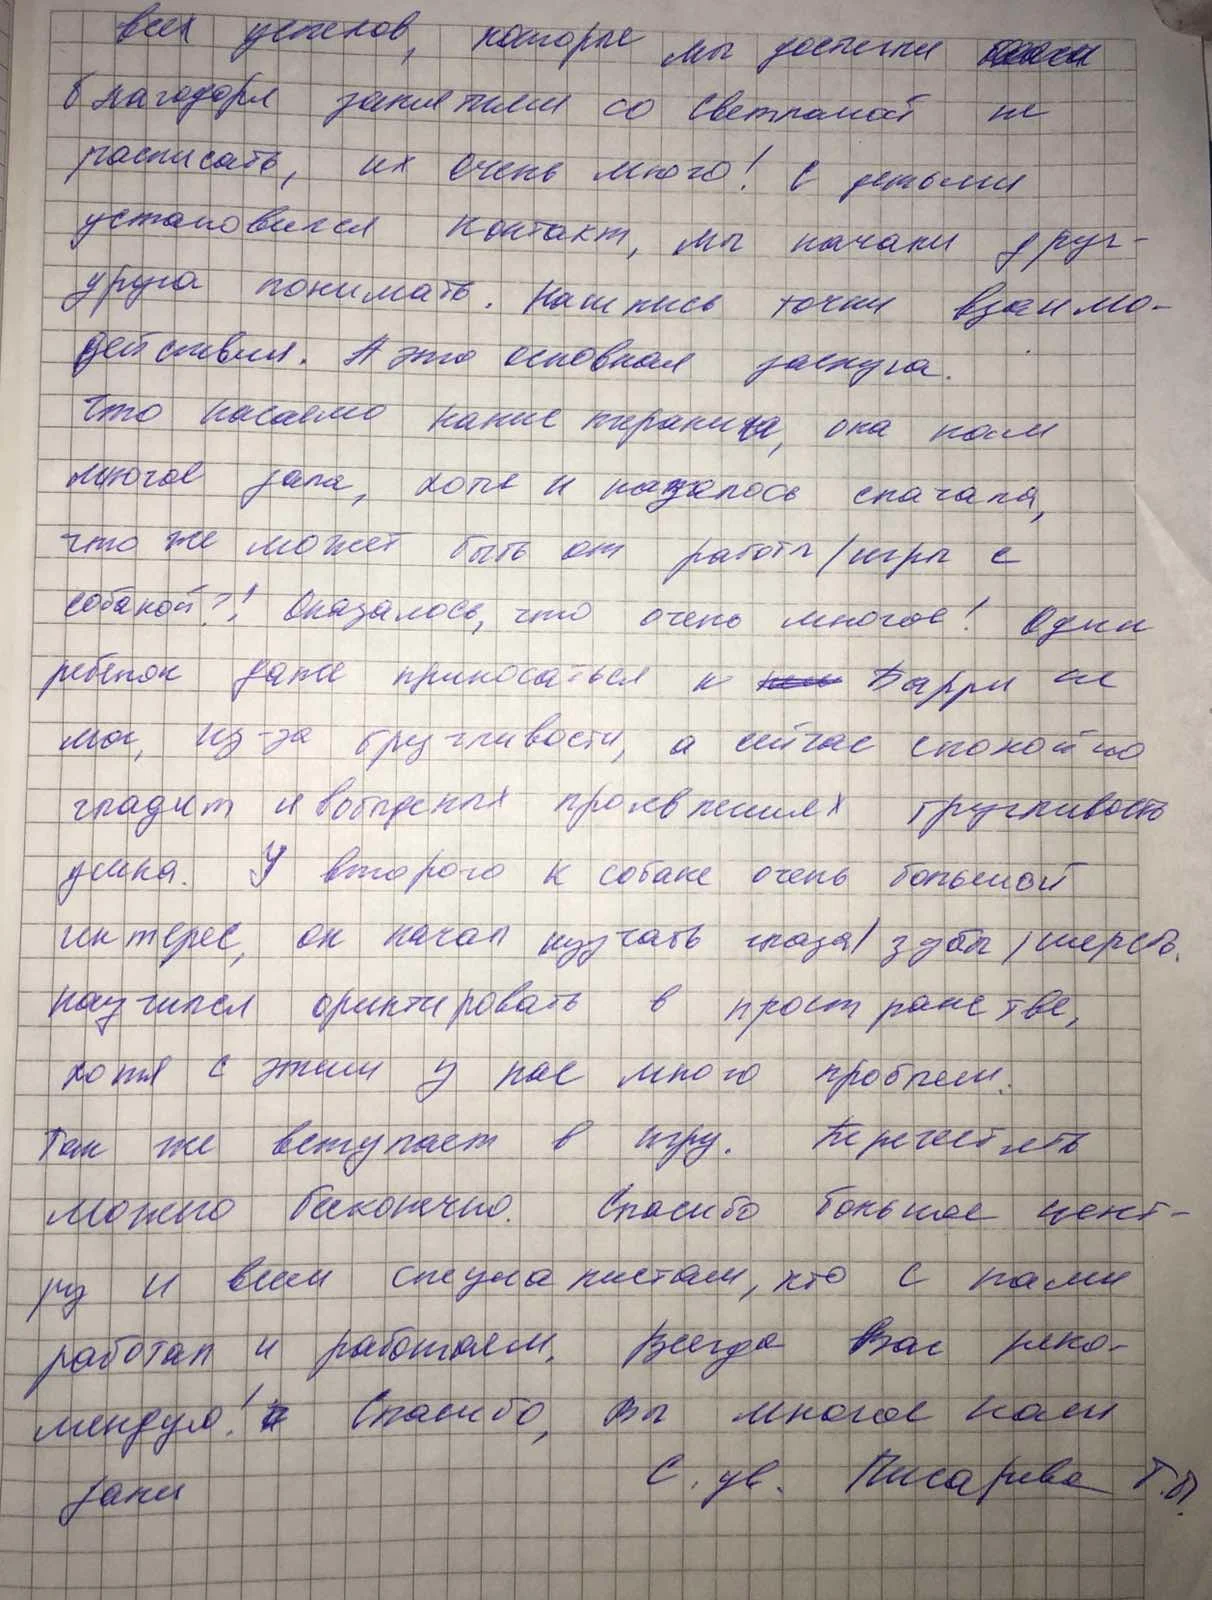 всех успехов, которые мы достигли
благодаря занятиям со Светланой не
расписать, их очень много! С детьми
установился контакт, мы начали друг-
друга понимать. Нашлись точки взаимо-
действия. А это основная заслуга.
Что касаемо канистерапии, она нам
многое дала, хотя и казалось сначала,
что же может быть от работы/игры с
собакой?! Оказалось, что очень многое! Один
ребенок даже прикосаться к Барри не
мог, из-за брузгливости, а сейчас спокойно
гладит и в обыденых проявлениях брузгливость
ушла. У второго к собаке очень большой
интерес, он начал изучать глаза/зубы/шерсть.
Научился ориктировать в пространстве,
хотя с этим у нас много проблем.
Так же вступает в игру. Перечеслять
можно бесконечно. Спасибо большое цент-
ру и всем специалистам, кто с нами
работал и работаем. Всегда Вас реко-
мендую! Спасибо, Вы многое нам
дали С. ув. Писарева Т.П.